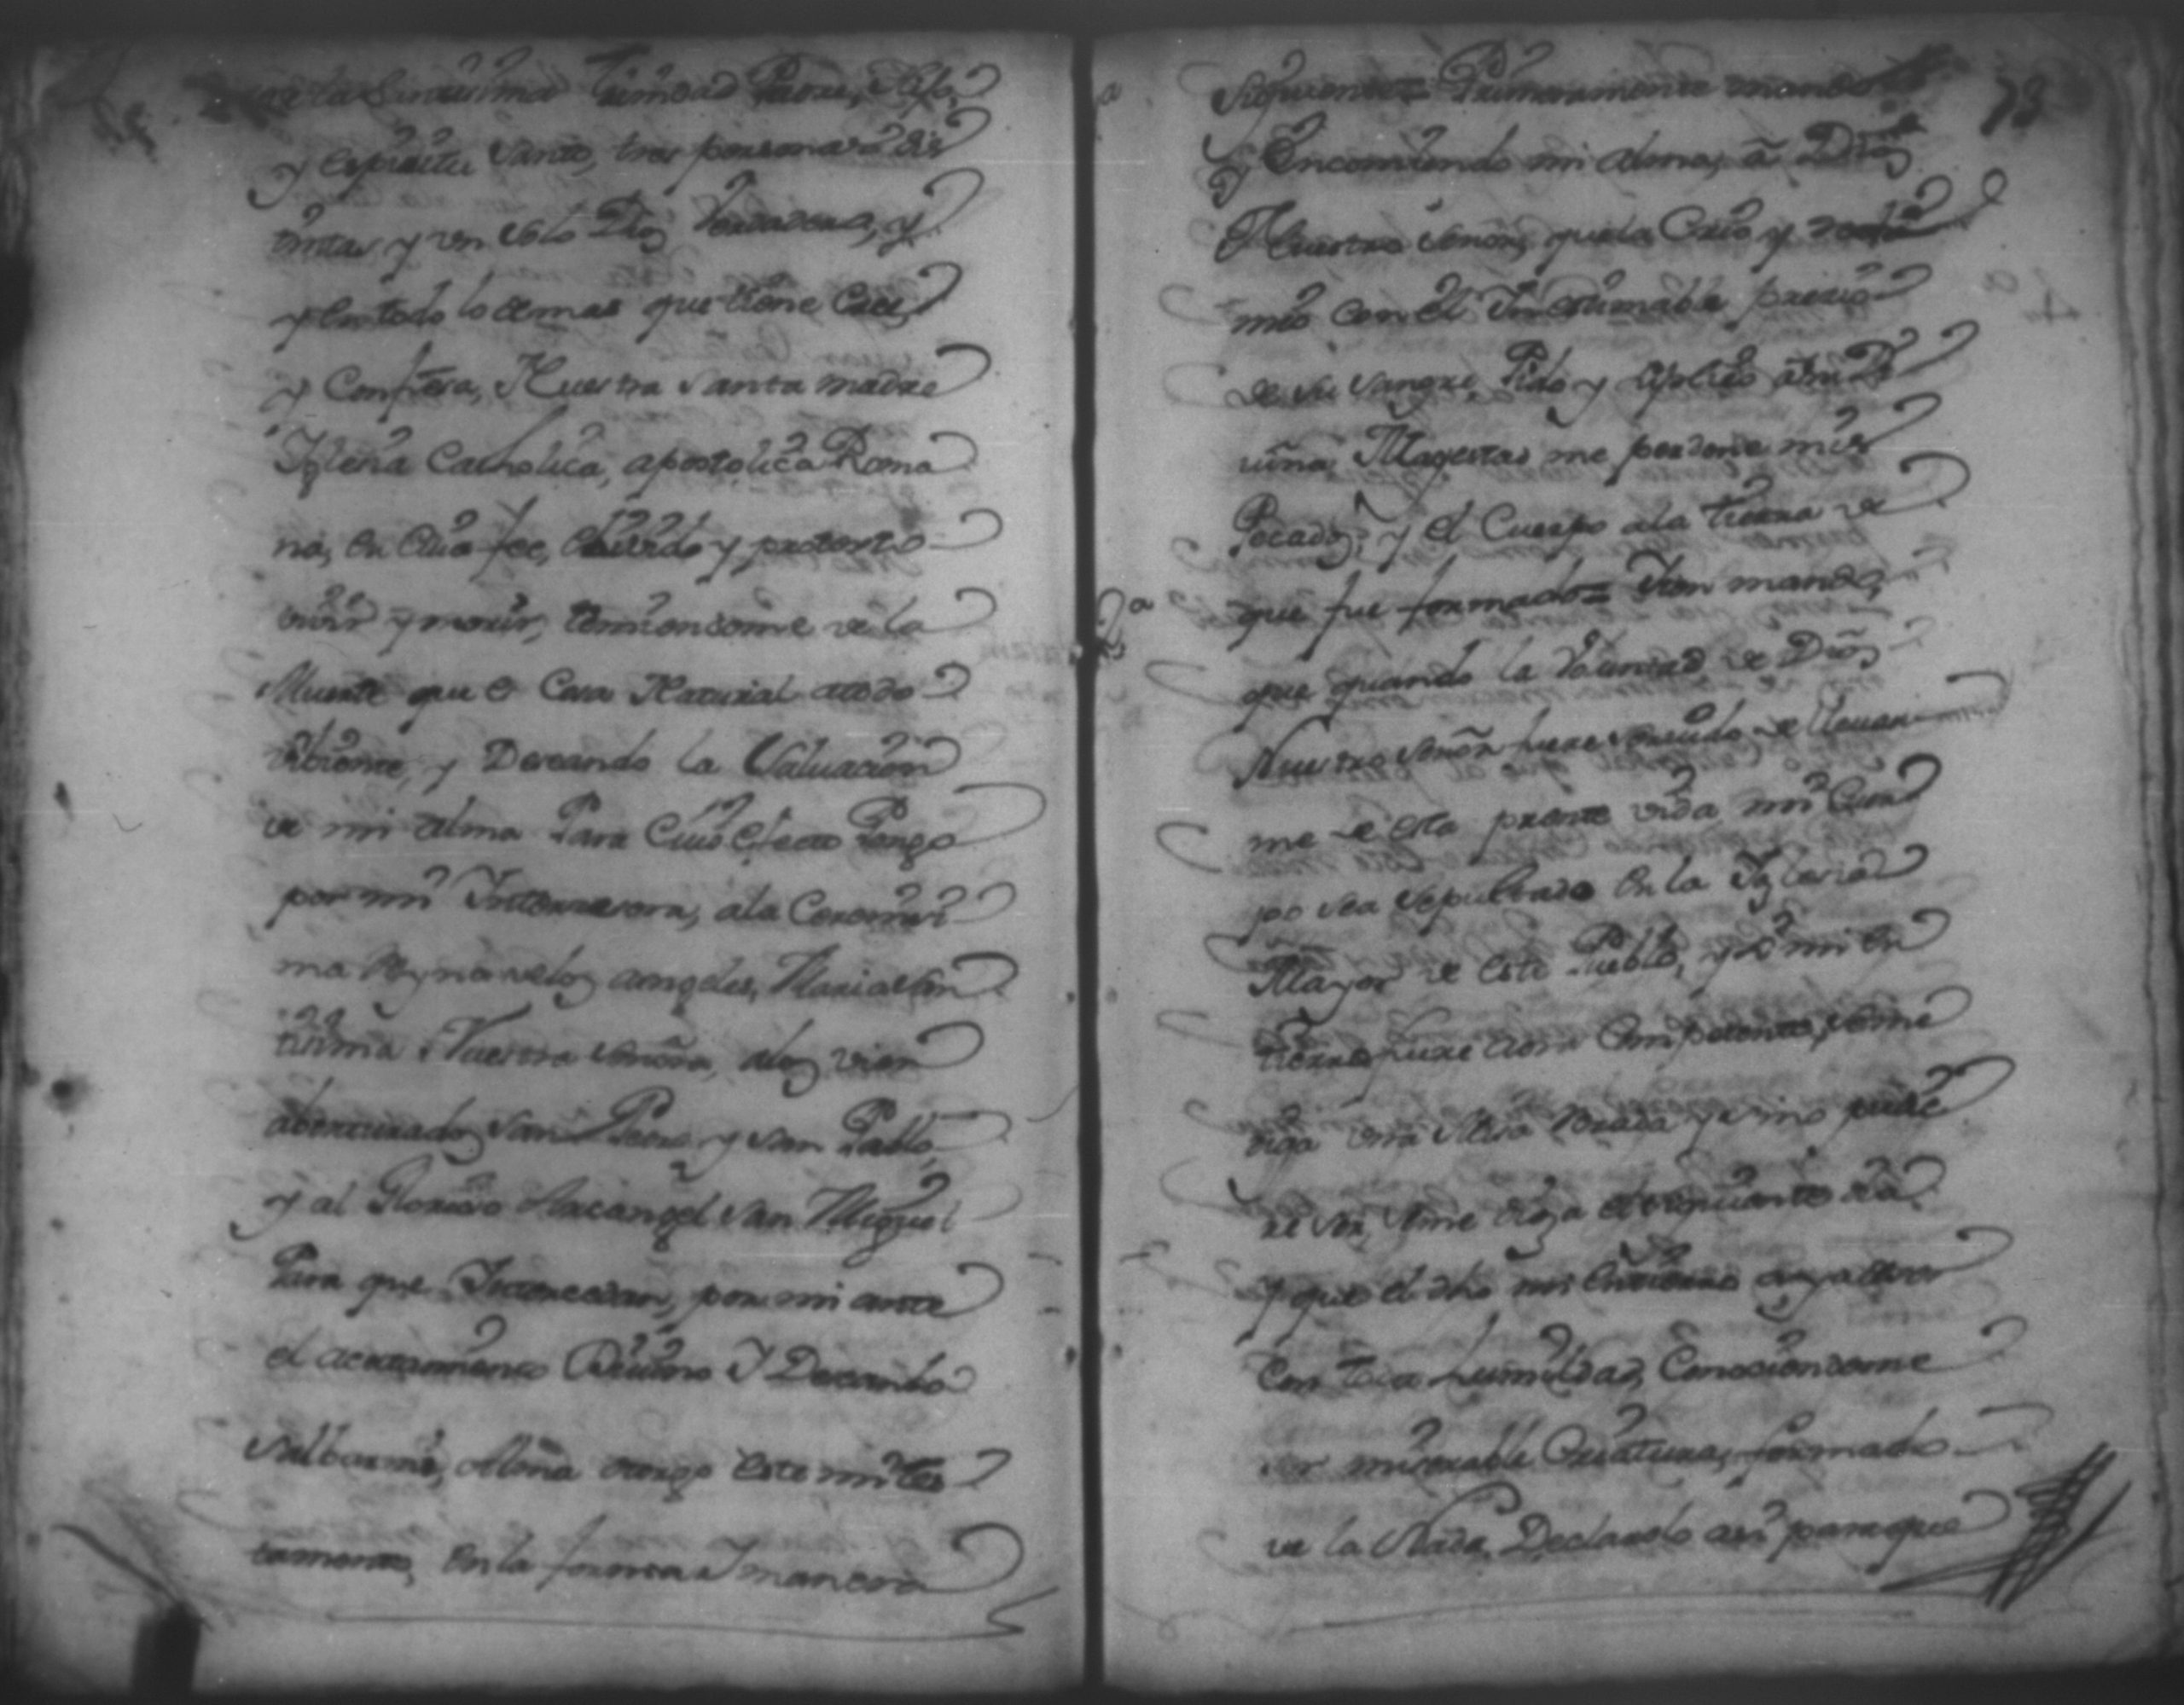 de la Santissima Trinidad Padre, Hijo,
y espiritu Santo, tres personas dis
tintas y un solo Dios Verdadero, y
y en todo lo demas que tiene Cree,
y Confiesa, Nuestra Santa madre
Iglesia Catholica, apostolica Roma
na, en Cuia fee, e viuido y protesto
viuir y morir, temiendome de la
Muerte que es Cosa Natural a todo
viuiente, y Deseando la Saluacion
de mi alma Para Cuio efecto Pongo
por mi Intersesora, a la Serenissi
ma Reyna de los angeles, Maria San
tissima Nuestra Señora, a los vien
abenturados San Pedro y San Pablo
y al Glorioso Arcangel San Miguel
Para que Intersedan, por mi ante
el acatamiento Diuino Y Deseando
Salbarme, otorgo este mi tes
tamento, en la forma Y manera
73
Siguiente = Primeramente mando
y Encomiendo mi alma, a Dios
Nuestro Señor, que la Crio y redi
mio con el Inestimable precio
de su Sangre, Pido y suplico a su Di
uina Magestad me perdone mis
Pecados, y el Cuerpo a la tierra de
que fue formado = Yten mando,
2a
que quando la Voluntad de Dios
Nuestro Señor fuere seruido de lleuar
me de esta presente vida mi Cuer
po sea sepultado en la Iglesia
Mayor de este Pueblo, y si mi en
tierro fuere aora Competente, se me
diga una Missa resada y si no pudie
re ser, se me diga el siguiente dia
y que el dho mi entierro aya de ser
Con toda humildad, Conosiendome
ser miserable Criatura, formado
de la Nada, Declarolo asi para que